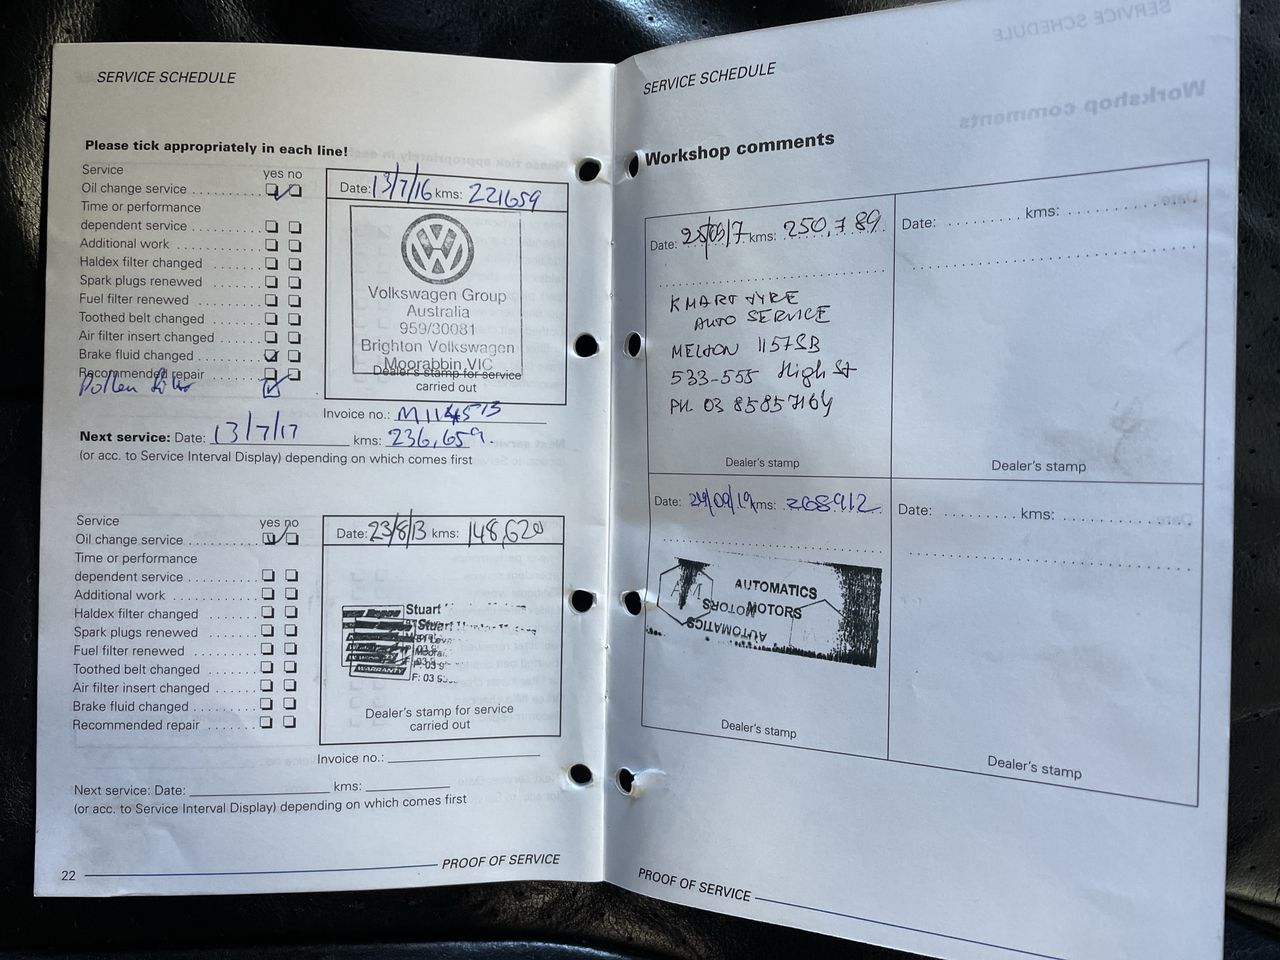 SERVICE SCHEDULE
Please tick appropriately in each line!
Service yes no
Oil change service
Time or performance
dependent service
Additional work
Haldex filter changed
Spark plugs renewed
Fuel filter renewed
Toothed belt changed
Air filter insert changed
Brake fluid changed
Recommended repair
Pollen
Date: 13/7/16 kms: 221659
Volkswagen Group
Australia
959/30081
Brighton Volkswagen
Moorabbin VIC
Dealer's stamp for service
carried out
Invoice no.: M114513
Next service: Date: 13/7/17 kms: 236,659.
(or acc. to Service Interval Display) depending on which comes first
Service yes no
Oil change service
Time or performance
dependent service
Additional work
Haldex filter changed
Spark plugs renewed
Fuel filter renewed
Toothed belt changed
Air filter insert changed
Brake fluid changed
Recommended repair
Date: 23/8/13 kms: 148,620
Stuart
Stuart
WARRANTY
Dealer's stamp for service
carried out
Invoice no.:
Next service: Date: kms:
(or acc. to Service Interval Display) depending on which comes first
22 PROOF OF SERVICE
SERVICE SCHEDULE
Workshop comments
Date: 25/09/7 kms: 250,789
KMART TYRE
AUTO SERVICE
MELTON 1157SB
533-555 High St
PH. 03 8585 7164
Dealer's stamp
Date: kms:
Dealer's stamp
Date: 24/09/19 kms: 268912
AUTOMATICS
MOTORS
MOTORS
AUTOMATICS
Dealer's stamp
Date: kms:
Dealer's stamp
PROOF OF SERVICE